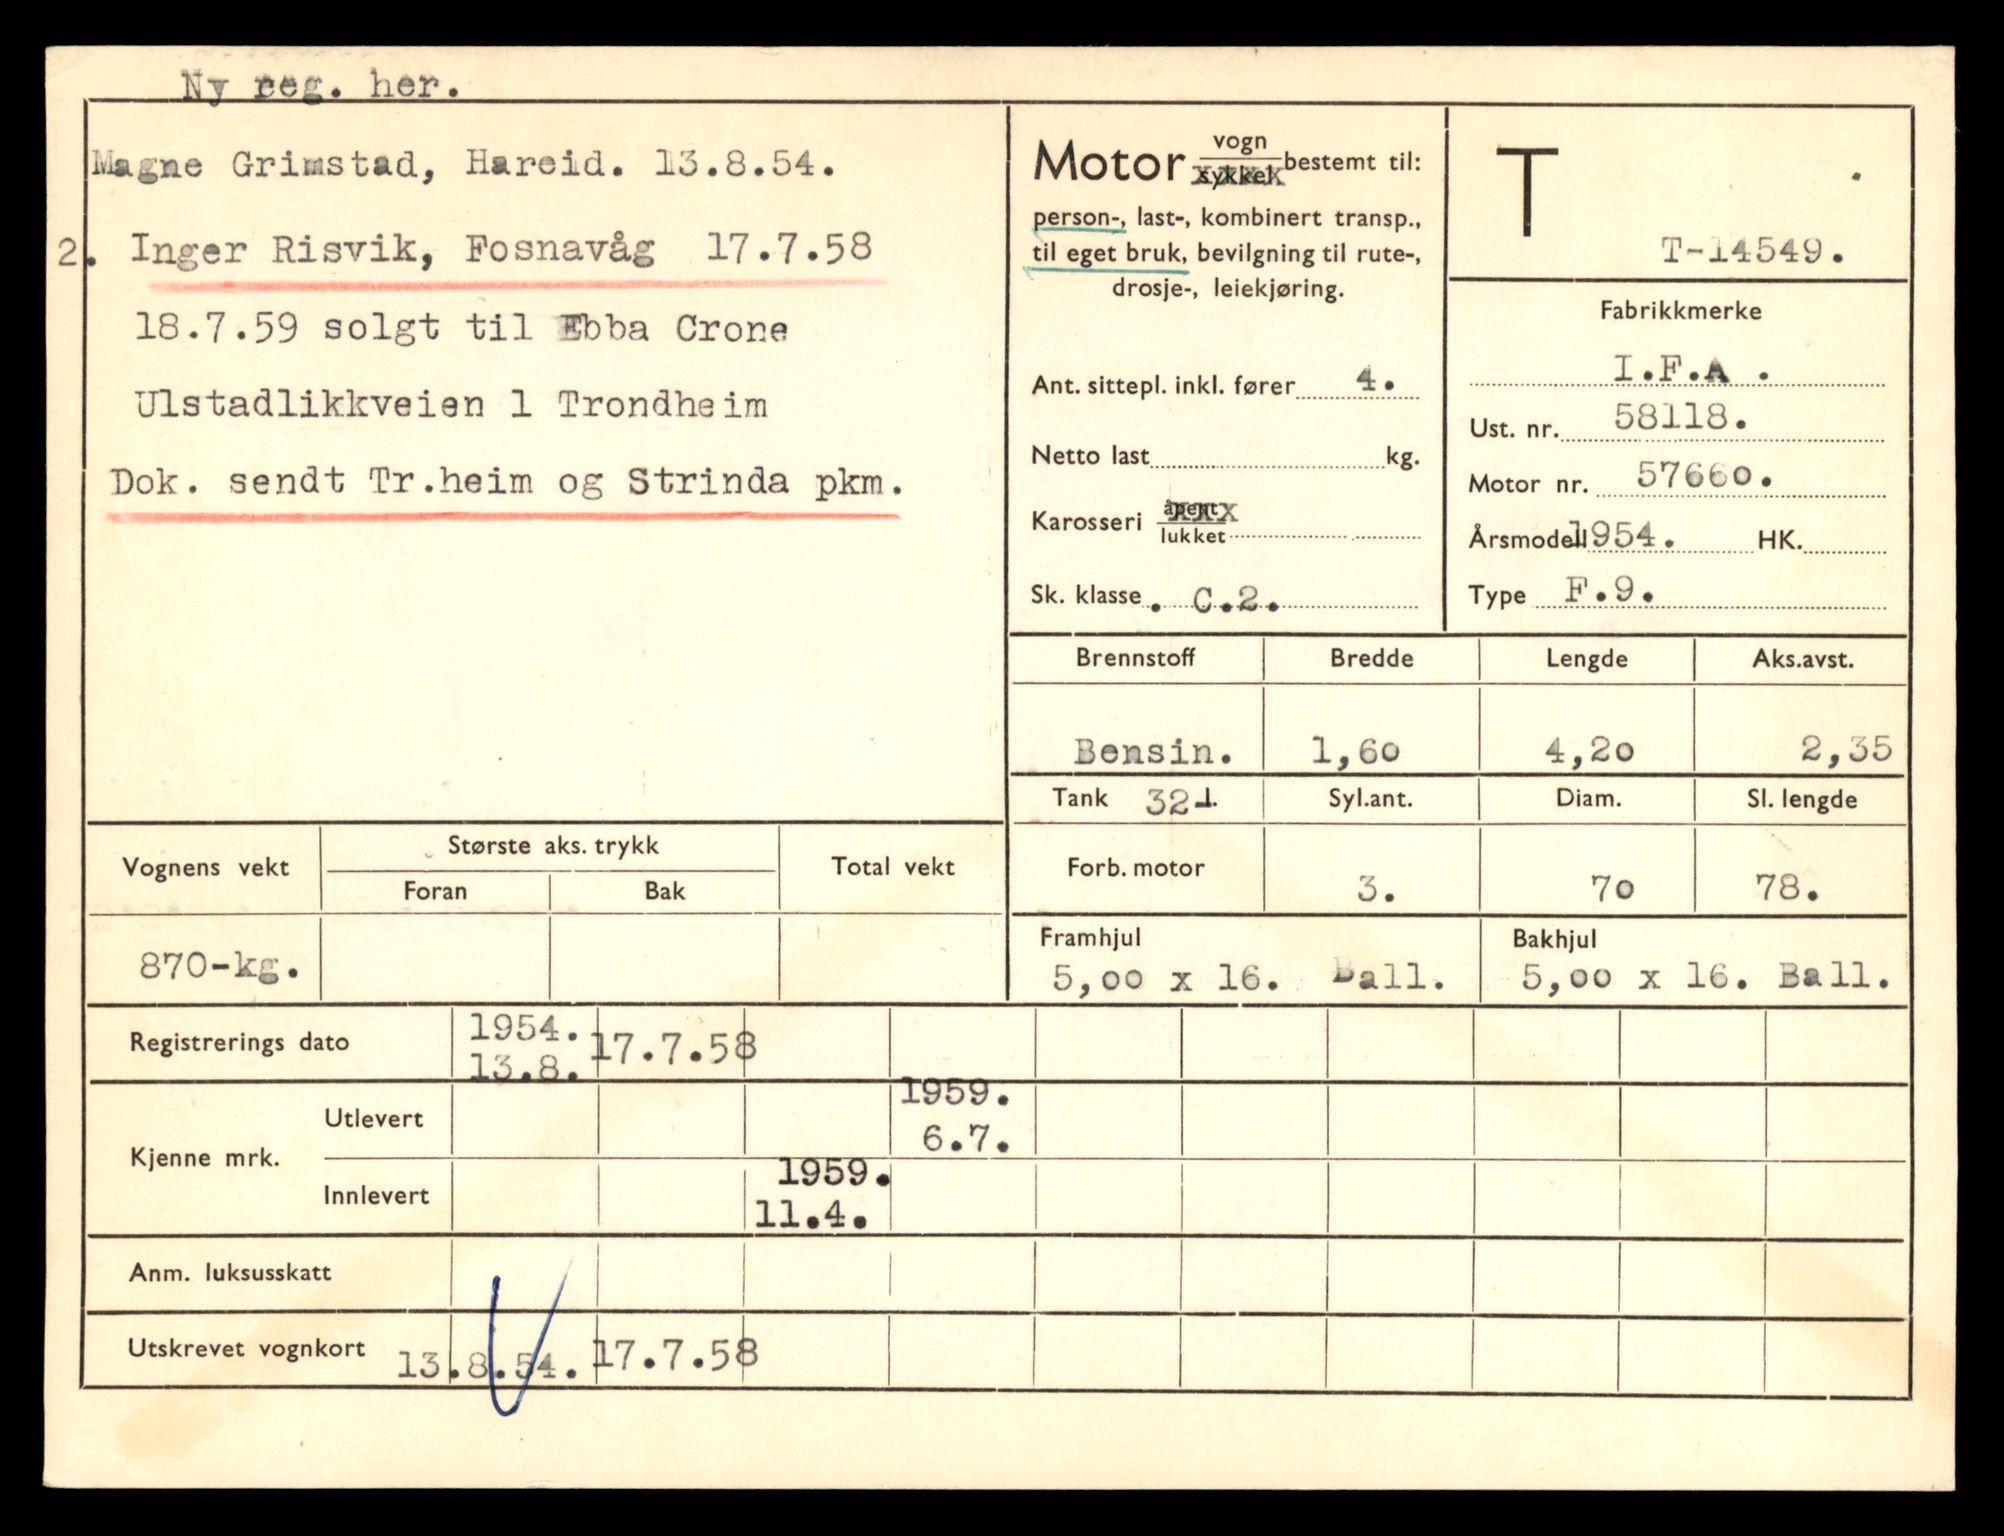 Ny reg. her.
Magne Grimstad, Hareid. 13.8.54.
2. Inger Risvik, Fosnavåg 17.7.58
18.7.59 solgt til Ebba Crone
Ulstadlikkveien 1 Trondheim
Dok. sendt Tr.heim og Strinda pkm.
Motor vogn sykkel bestemt til:
person-, last-, kombinert transp.,
til eget bruk, bevilgning til rute-,
drosje-, leiekjøring.
Ant. sittepl. inkl. fører 4.
Netto last kg.
Karosseri åpent lukket
Sk. klasse . C.2.
T
T-14549.
Fabrikkmerke
I.F.A .
Ust. nr. 58118.
Motor nr. 57660.
Årsmodell 1954. HK.
Type F.9.
Brennstoff Bredde Lengde Aks.avst.
Bensin. 1,60 4,20 2,35
Tank 32-l. Syl.ant. Diam. Sl. lengde
Forb. motor 3. 70 78.
Framhjul Bakhjul
5,00 x 16. Ball. 5,00 x 16. Ball.
Vognens vekt Største aks. trykk Total vekt
Foran Bak
870-kg.
Registrerings dato 1954. 13.8. 17.7.58
Kjenne mrk. Utlevert 1959. 6.7.
Innlevert 1959. 11.4.
Anm. luksusskatt
Utskrevet vognkort 13.8.54. 17.7.58